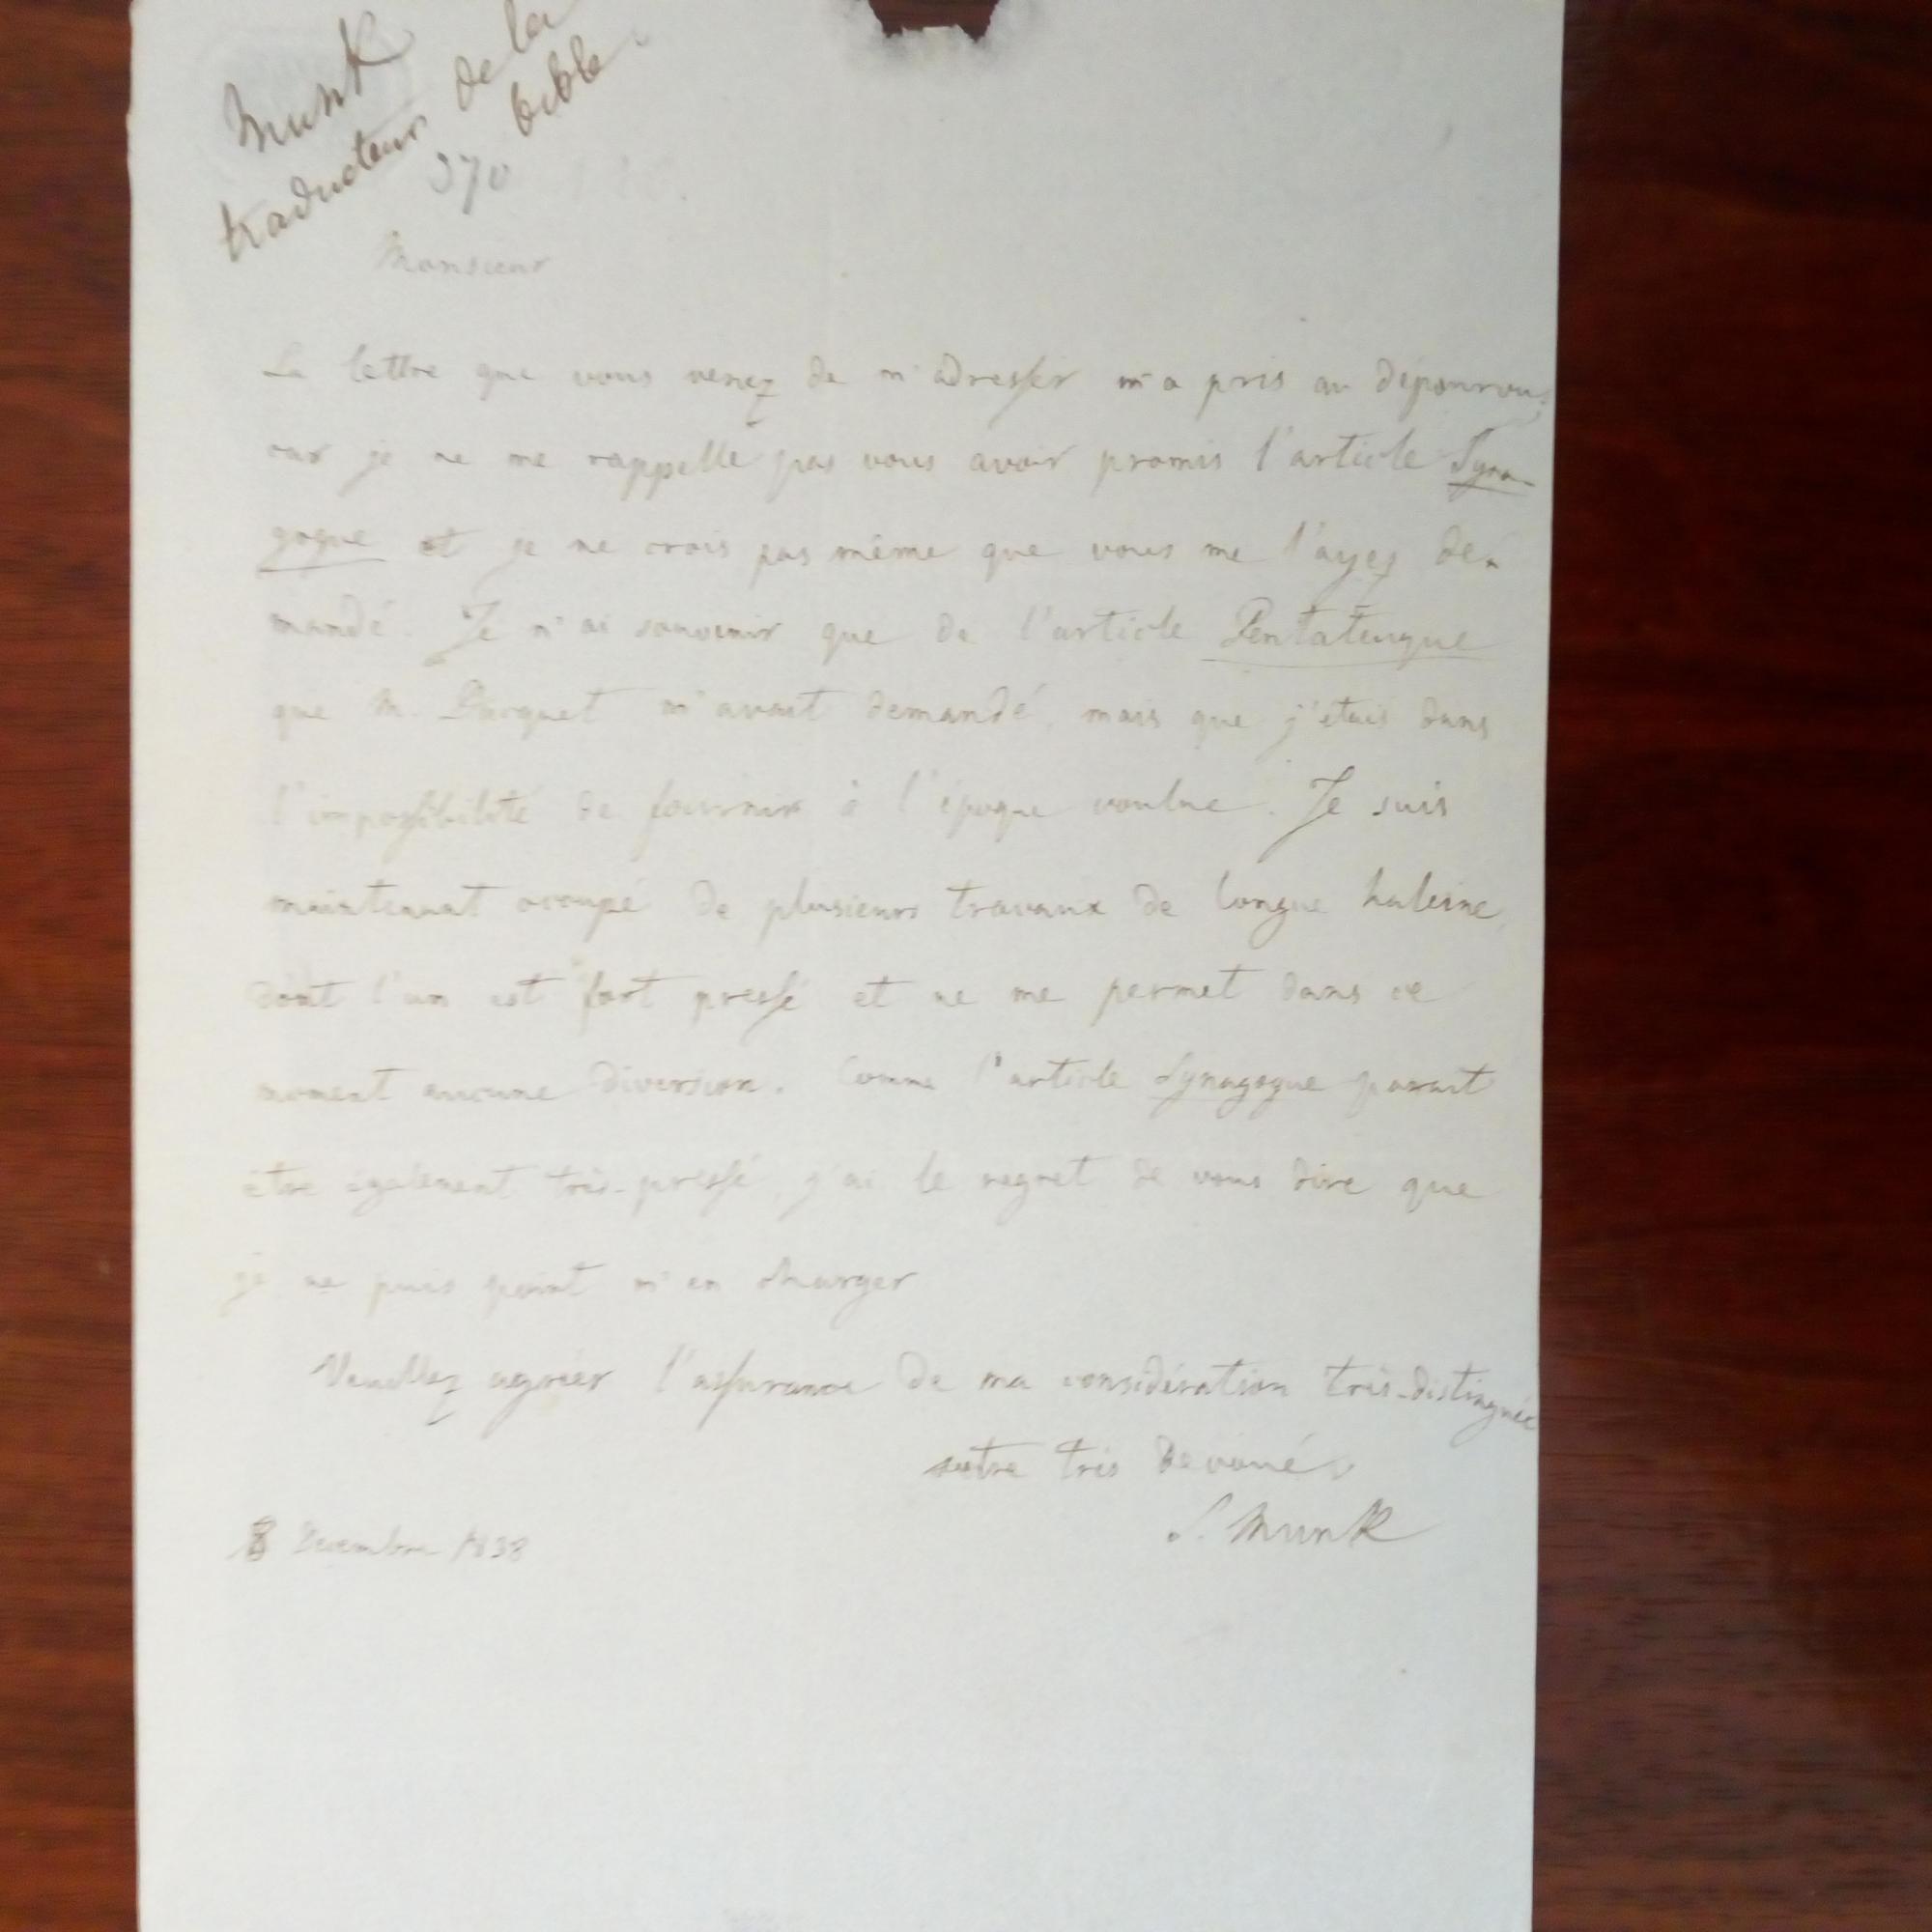 Munk
traducteur de la
bible
370
Monsieur
La lettre que vous venez de m'adresser m'a pris au dépourvu,
car je ne me rappelle pas vous avoir promis l'article Syna-
gogue et je ne crois pas même que vous me l'ayez de-
mandé. Je n'ai souvenir que de l'article Pentateuque
que M. m'avait demandé, mais que j'étais dans
l'impossibilité de fournir à l'époque voulue. Je suis
maintenant occupé de plusieurs travaux de longue haleine,
dont l'un est fort pressé et ne me permet dans ce
moment aucune diversion. Comme l'article Synagogue parait
être également très-pressé, j'ai le regret de vous dire que
je ne puis point m'en charger
Veuillez agréer l'assurance de ma considération très-distinguée
votre très devoué
S. Munk
8 Decembre 1838